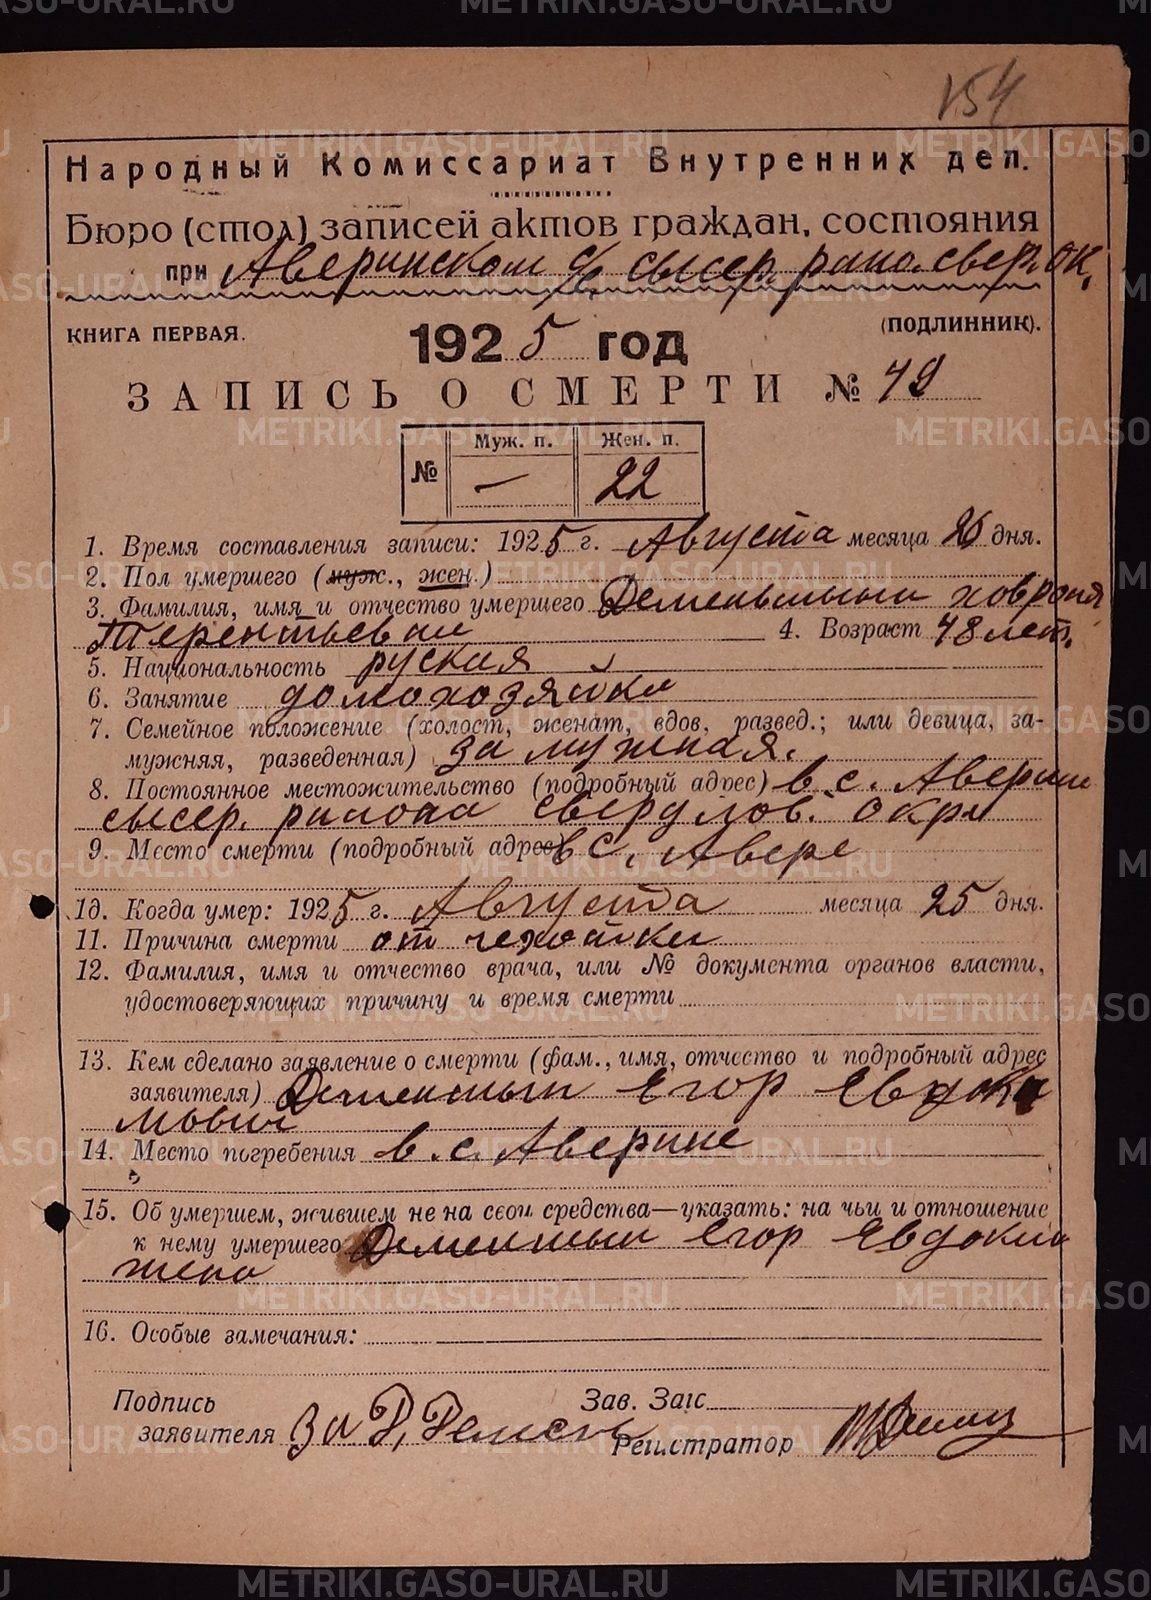 154
Народный Комиссариат Внутренних дел.
Бюро (стол) записей актов граждан, состояния
при Аверинском с/с сысер. раио. свер. ок.
КНИГА ПЕРВАЯ.
1925 год
(ПОДЛИННИК).
ЗАПИСЬ О СМЕРТИ № 49
№ Муж. п. Жен. п.
— 22
1. Время составления записи: 1925 г. Августа месяца 26 дня.
2. Пол умершего (муж., жен.)
3. Фамилия, имя и отчество умершего Деменьшыни ховрония
Терентьевни 4. Возраст 48 лет.
5. Национальность руская
6. Занятие домохозяйка
7. Семейное положение (холост, женат, вдов, развед.; или девица, за-
мужняя, разведенная) за мужная.
8. Постоянное местожительство (подробный адрес) в с. Аверине
сысер. раиона свердлов. окри
9. Место смерти (подробный адрес) в с. Авере
10. Когда умер: 1925 г. Августа месяца 25 дня.
11. Причина смерти от чехотки
12. Фамилия, имя и отчество врача, или № документа органов власти,
удостоверяющих причину и время смерти
13. Кем сделано заявление о смерти (фам., имя, отчество и подробный адрес
заявителя) Деменшын Егор Евдоки
мович
14. Место погребения в. с. Аверине
15. Об умершем, жившем не на свои средства—указать: на чьи и отношение
к нему умершего Деменшын Егор Евдоким
жена
16. Особые замечания:
Подпись Зав. Загс
заявителя За Регистратор
METRIKI.GASO-URAL.RU